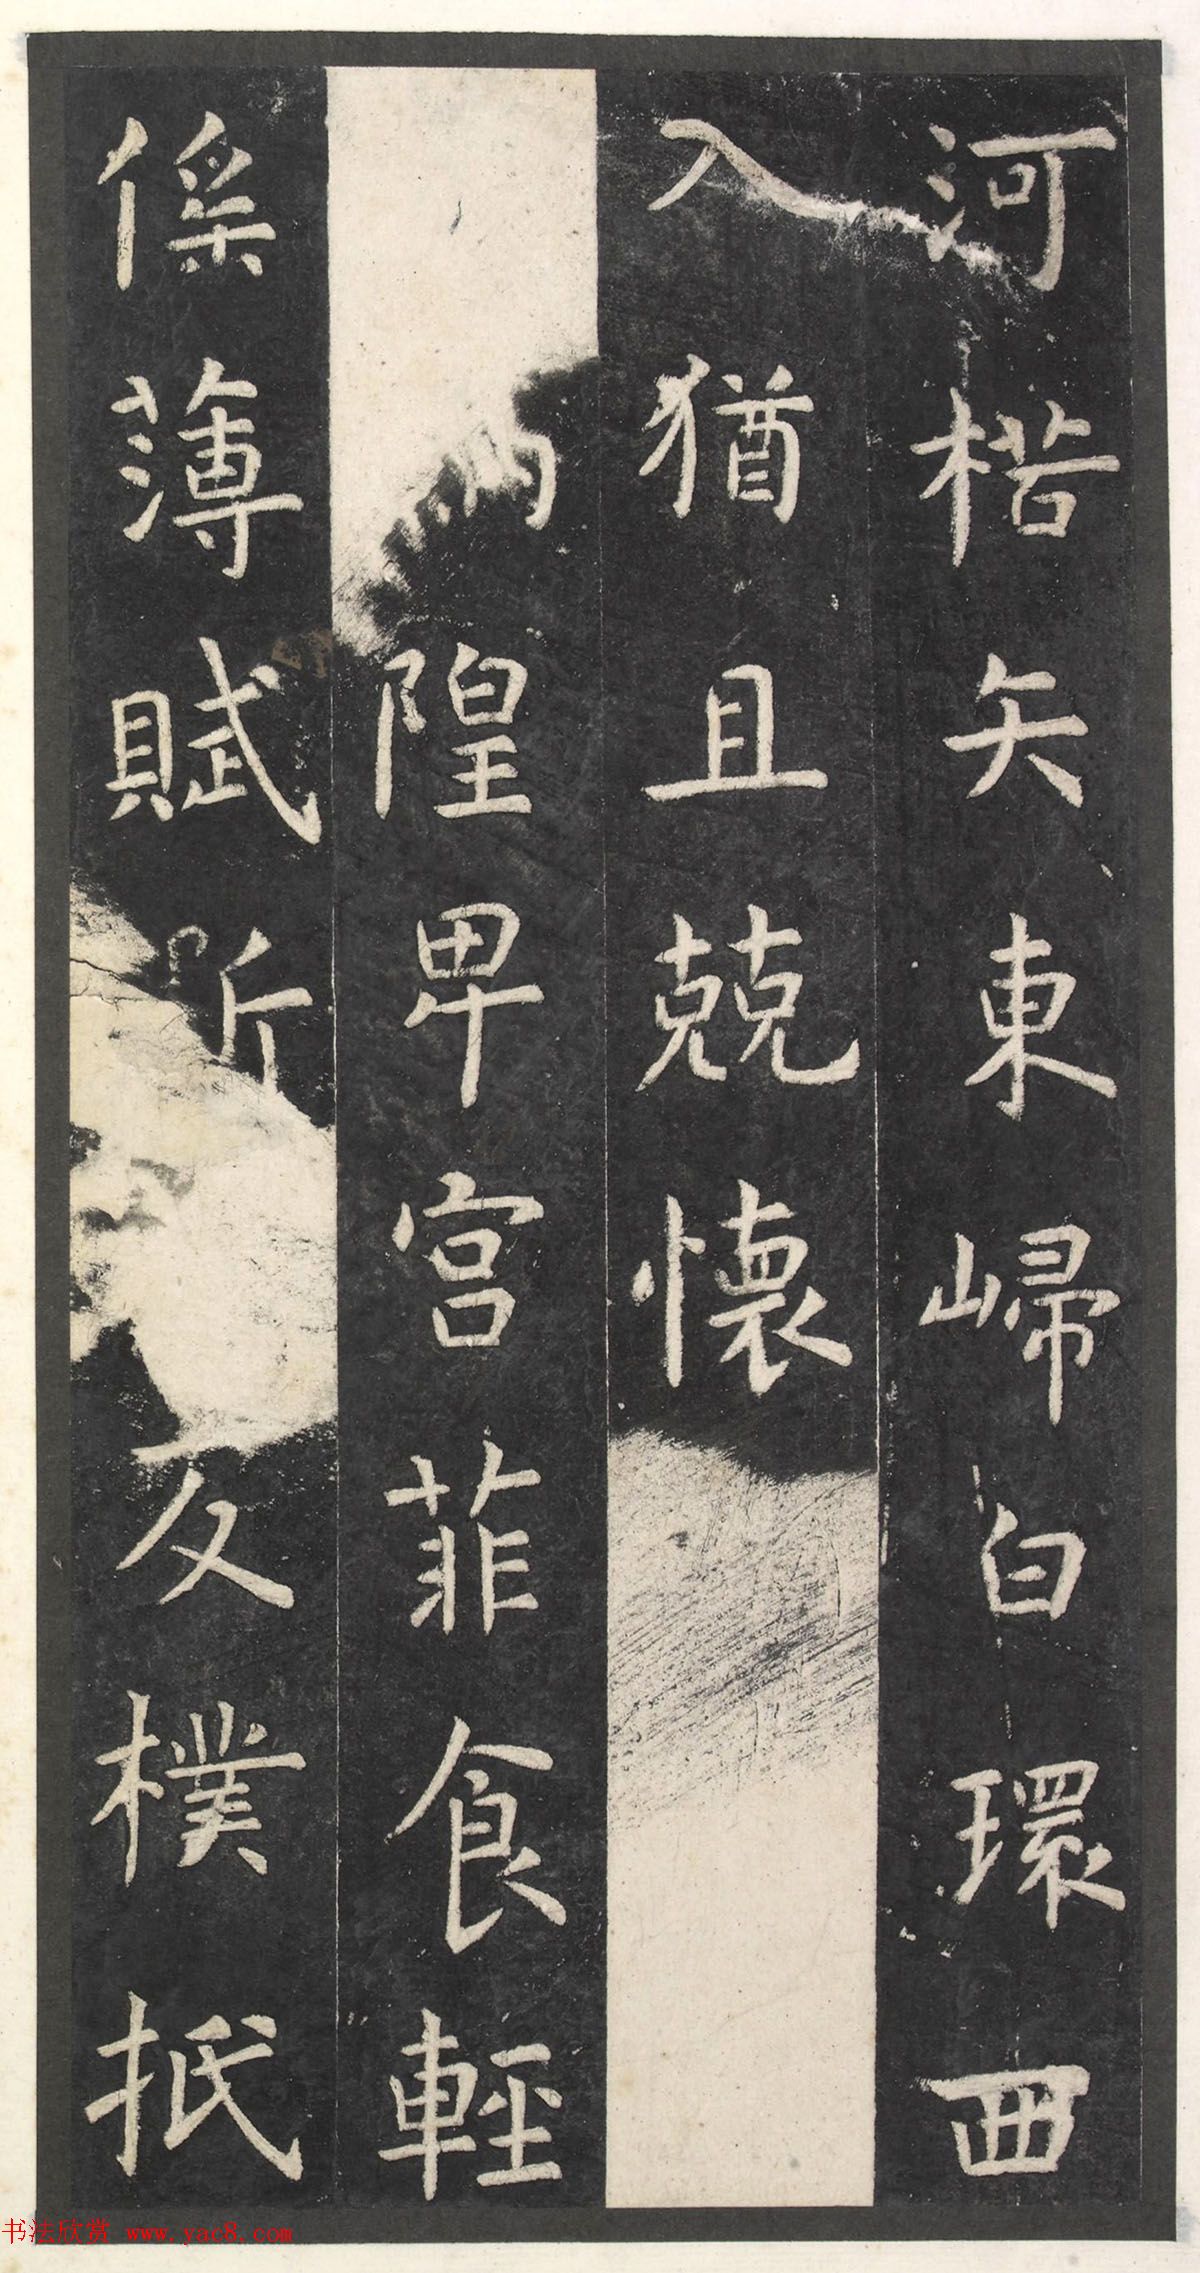 河楛矢東歸白環西
入猶且兢懷
隍卑宮菲食輕
傜薄賦反樸抵
书法欣赏 www.yac8.com